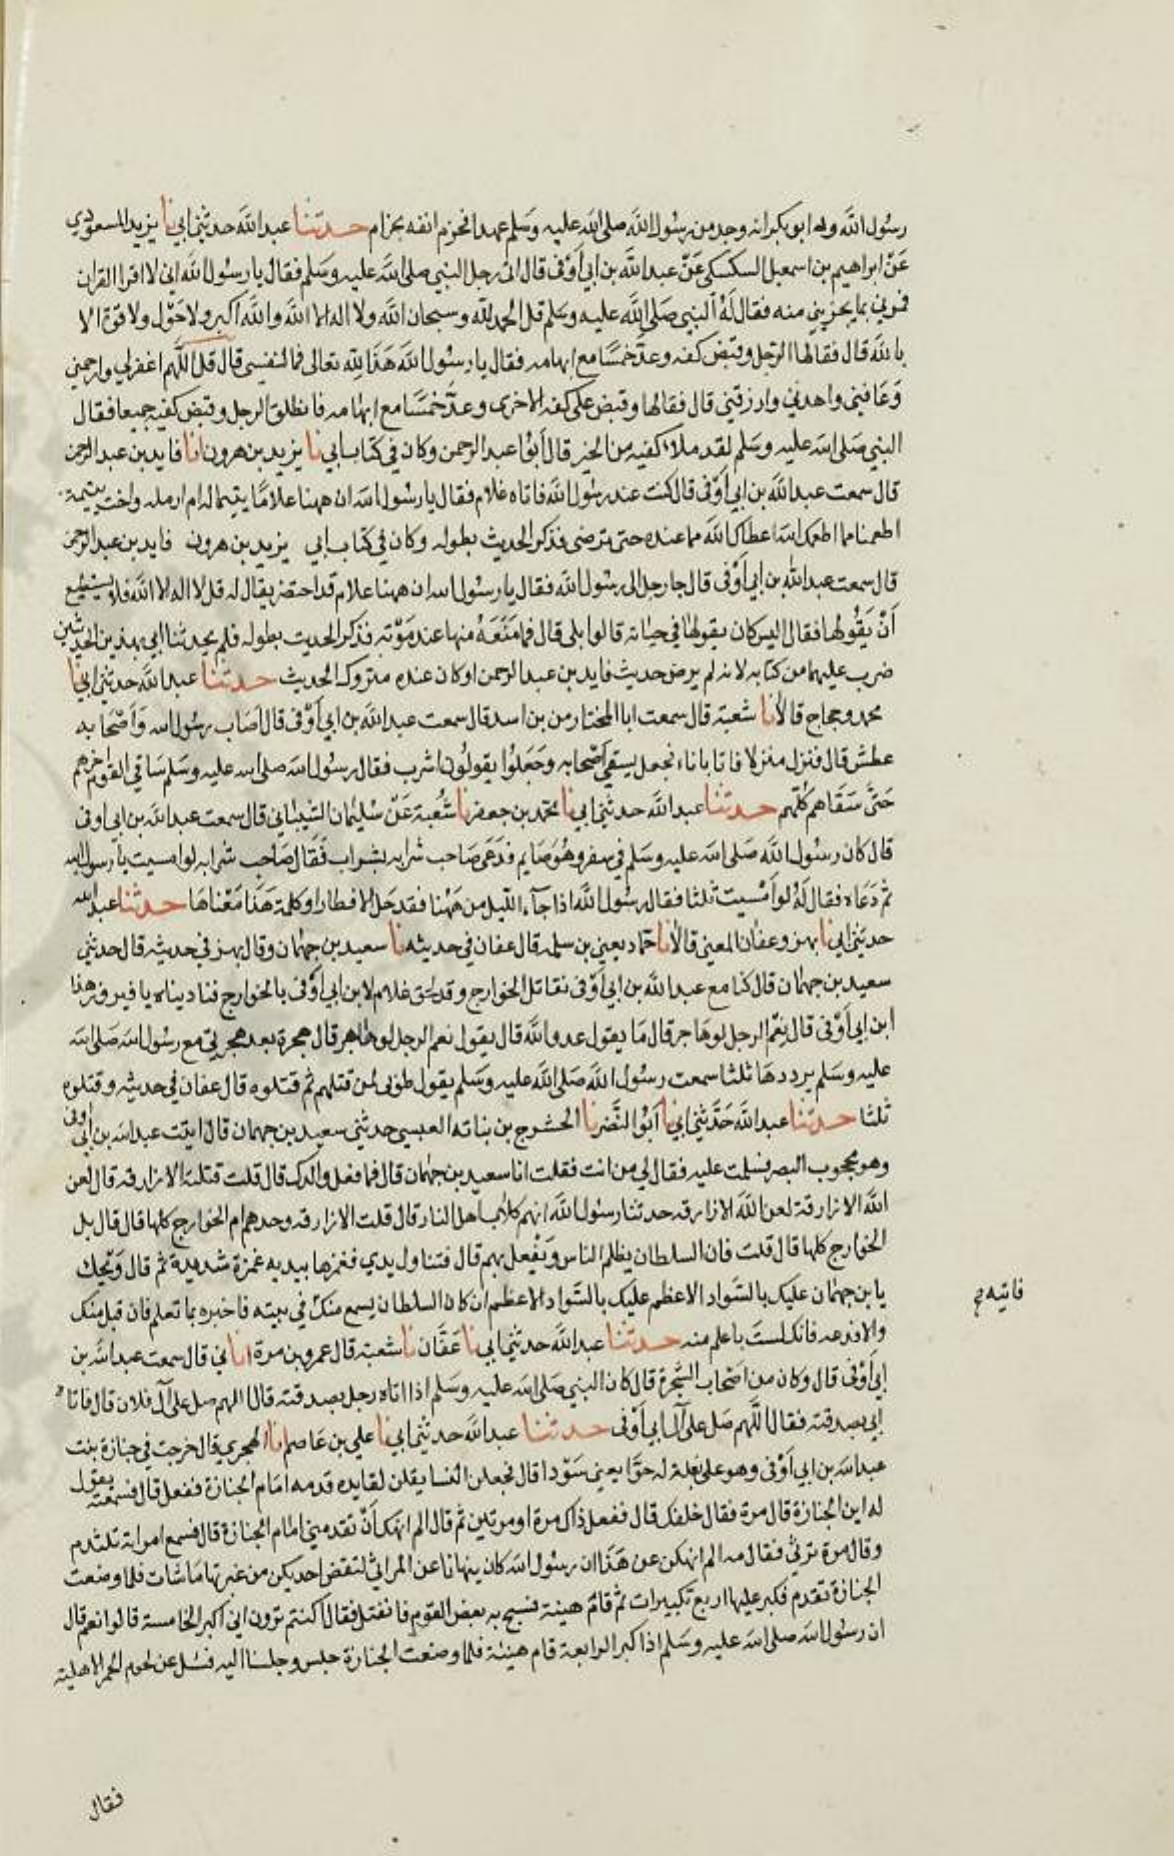 رسول الله وله ابو بكر انه وجد من رسول الله صلى الله عليه وسلم عهدا فخزم انفه بخزام حدثنا عبد الله حدثني ابي نا يزيد المسعودي
عن ابراهيم بن اسمعيل السكسكي عن عبد الله بن ابي أوفى قال اتى رجل النبي صلى الله عليه وسلم فقال يا رسول الله اني لا اقرا القران
فمرني بما يجزيني منه فقال له النبي صلى الله عليه وسلم قل الحمد لله وسبحان الله ولا اله الا الله والله اكبر ولا حول ولا قوة الا
بالله قال فقالها الرجل وقبض كفه وعد خمسا مع ابهامه فقال يا رسول الله هذا لله تعالى فما لنفسي قال قل اللهم اغفر لي وارحمني
وعافني واهدني وارزقني قال فقالها وقبض على كفه الاخرى وعد خمسا مع ابهامه فانطلق الرجل وقبض كفيه جميعا فقال
النبي صلى الله عليه وسلم لقد ملاء كفيه من الخير قال أبو عبد الرحمن وكان في كتاب ابي نا يزيد بن هرون انا فايد بن عبد الرحمن
قال سمعت عبد الله بن ابي أوفى قال كنت عند رسول الله فاتاه غلام فقال يا رسول الله ان ههنا غلاما يتيما له ام ارملة واخت يتيمة
اطعمنا مما اطعمك الله اعطاك الله مما عنده حتى ترضى فذكر الحديث بطوله وكان في كتاب ابي يزيد بن هرون فايد بن عبد الرحمن
قال سمعت عبد الله بن ابي أوفى قال جا رجل الى رسول الله فقال يا رسول الله ان ههنا غلام قد احتضر يقال له قل لا اله الا الله فلا يستطيع
أن يقولها فقال اليس كان يقولها في حياته قالوا بلى قال فما منعه منها عند موته فذكر الحديث بطوله فلم يحدثنا ابي بهذين الحديثين
ضرب عليهما من كتابه لانه لم يرض حديث فايد بن عبد الرحمن او كان عنده متروك الحديث حدثنا عبد الله حدثني ابي نا
محمد وحجاج قالا نا شعبة قال سمعت ابا المختار من بن اسد قال سمعت عبد الله بن ابي أوفى قال أصاب رسول الله وأصحابه
عطش قال فنزل منزلا فاتا باناء فجعل يسقي أصحابه وجعلوا يقولون اشرب فقال رسول الله صلى الله عليه وسلم ساقي القوم اخرهم
حتى سقاهم كلهم حدثنا عبد الله حدثني ابي نا محمد بن جعفر نا شعبة عن سليمان الشيباني قال سمعت عبد الله بن ابي اوفى
قال كان رسول الله صلى الله عليه وسلم في سفر وهو صايم فدعى صاحب شرابه بشراب فقال صاحب شرابه لو امسيت يا رسول الله
ثم دعاه فقال له لو أمسيت ثلثا فقال رسول الله اذا جاء الليل من ههنا فقد حل الافطار او كلمة هذا معناها حدثنا عبد الله
حدثني ابي نا بهز وعفان المعنى قالا نا حماد يعني بن سلمه قال عفان في حديثه نا سعيد بن جمهان وقال بهز في حديثه قال حدثني
سعيد بن جمهان قال كنا مع عبد الله بن ابي أوفى نقاتل الخوارج وقد لحق غلام لابن ابي أوفى بالخوارج فناديناه يا فيروز هذا
ابن ابي أوفى قال نعم الرجل لو هاجر قال ما يقول عدو الله قال يقول نعم الرجل لو هاجر قال هجرة بعد هجرتي مع رسول الله صلى الله
عليه وسلم يرددها ثلثا سمعت رسول الله صلى الله عليه وسلم يقول طوبى لمن قتلهم ثم قتلوه قال عفان في حديثه وقتلوه
ثلثا حدثنا عبد الله حدثني ابي نا أبو النضر نا الحشرج بن بناته العبسي حدثني سعيد بن جمهان قال اتيت عبد الله بن ابي أوفى
وهو محجوب البصر فسلمت عليه فقال لي من انت فقلت انا سعيد بن جمهان قال فما فعل والدك قال قلت قتلته الازارقه قال لعن
الله الازارقة لعن الله الازارقه حدثنا رسول الله انهم كلاب اهل النار قال قلت الازارقه وحدهم ام الخوارج كلها قال قال بل
الخوارج كلها قال قلت فان السلطان يظلم الناس ويفعل بهم قال فتناول يدي فغمزها بيده غمزة شديدة ثم قال ويحك
يا بن جمهان عليك بالسواد الاعظم عليك بالسواد الاعظم ان كان السلطان يسمع منك في بيته فاخبره بما تعلم فان قبل منك
فاتيه
والا فدعه فانك لست باعلم منه حدثنا عبد الله حدثني ابي نا عفان نا شعبة قال عمرو بن مرة انا ني قال سمعت عبد الله بن
ابي أوفى قال وكان من أصحاب الشجرة قال كان النبي صلى الله عليه وسلم اذا اتاه رجل بصدقته قال اللهم صل على آل فلان قال فاتاه
أبي بصدقته فقال اللهم صل على آل ابي أوفى حدثنا عبد الله حدثني ابي نا علي بن عاصم انا الهجري قال خرجت في جنازة بنت
عبد الله بن ابي أوفى وهو على بغلة له حوا يعني سودا قال فجعلن النسا يقلن لقايده قدمه امام الجنازة ففعل قال فسمعته يقول
له اين الجنازة قال مرة فقال خلفك قال ففعل ذاك مرة او مرتين ثم قال الم انهك أن تقدمني امام الجنازة قال فسمع امراة تلتدم
وقال مرة ترثي فقال مه الم انهكن عن هذا ان رسول الله كان ينهانا عن المراثي لتفض احديكن من عبرتها ما شات فلما وضعت
الجنازة تقدم فكبر عليها اربع تكبيرات ثم قام هينة فسبح به بعض القوم فانفتل فقال اكنتم ترون اني اكبر الخامسة قالوا نعم قال
ان رسول الله صلى الله عليه وسلم اذا كبر الرابعة قام هينة فلما وضعت الجنازة جلس وجلسنا اليه فسل عن لحوم الحمر الاهلية
فقال